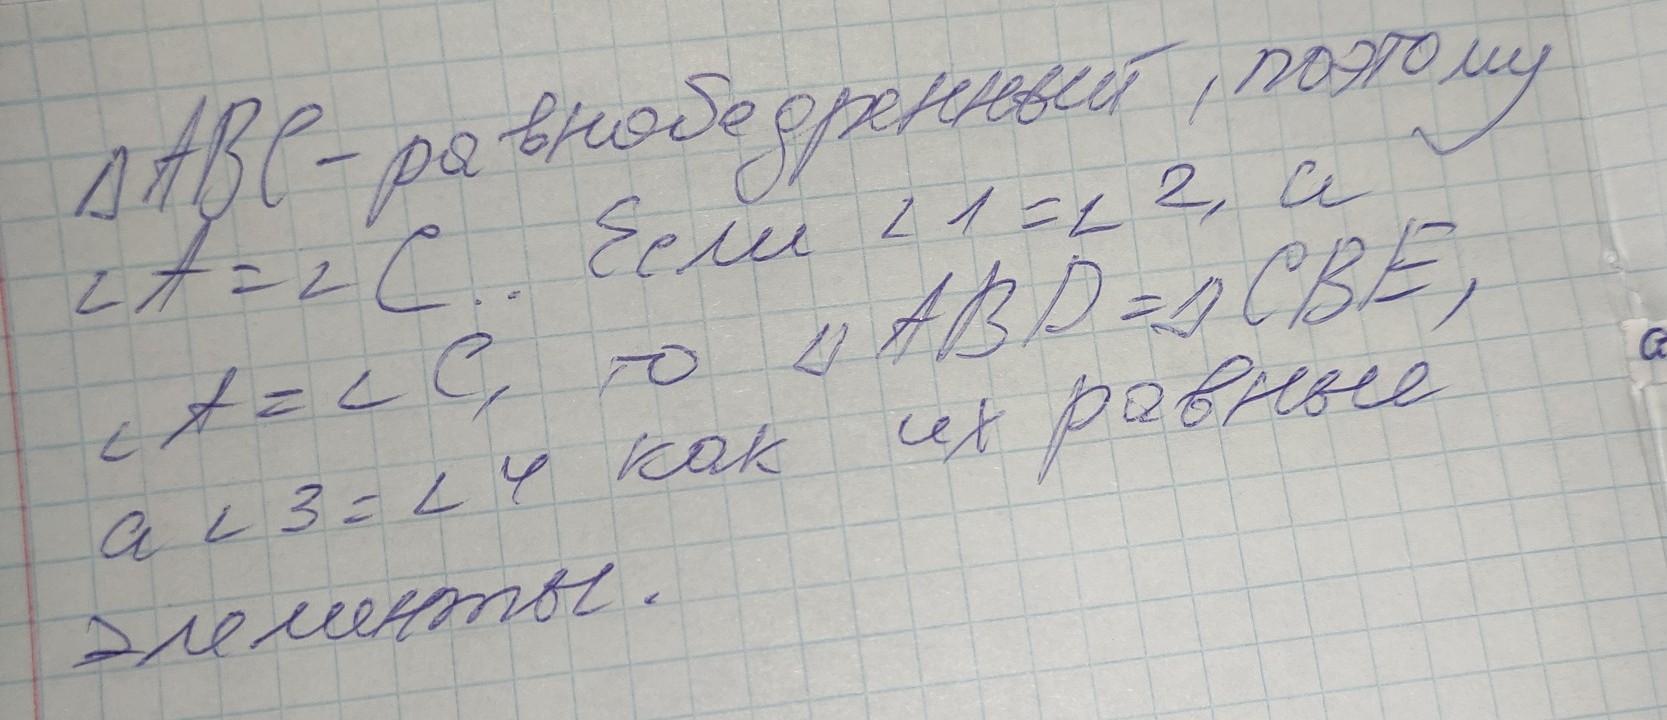 △ABC - равнобедренный, поэтому
∠A = ∠C.. Если ∠1 = ∠2, а
∠A = ∠C, то △ABD = △CBE,
а ∠3 = ∠4 как их равные
элементы.
а